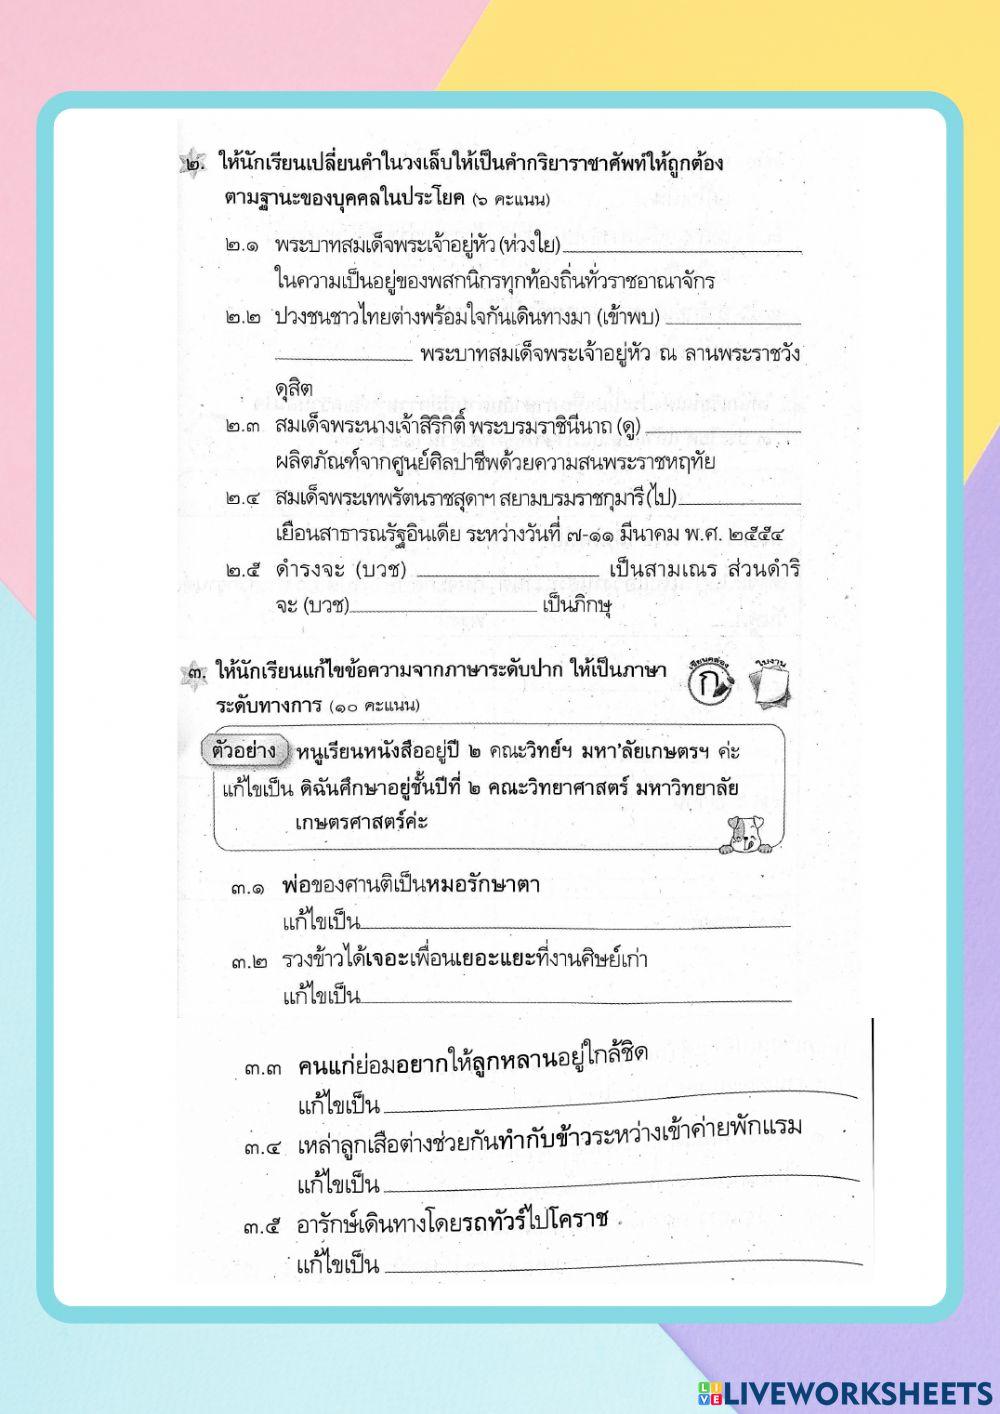 ๒. ให้นักเรียนเปลี่ยนคำในวงเล็บให้เป็นคำกริยาราชาศัพท์ให้ถูกต้อง
ตามฐานะของบุคคลในประโยค (๖ คะแนน)
๒.๑ พระบาทสมเด็จพระเจ้าอยู่หัว (ห่วงใย)
ในความเป็นอยู่ของพสกนิกรทุกท้องถิ่นทั่วราชอาณาจักร
๒.๒ ปวงชนชาวไทยต่างพร้อมใจกันเดินทางมา (เข้าพบ)
พระบาทสมเด็จพระเจ้าอยู่หัว ณ ลานพระราชวัง
ดุสิต
๒.๓ สมเด็จพระนางเจ้าสิริกิติ์ พระบรมราชินีนาถ (ดู)
ผลิตภัณฑ์จากศูนย์ศิลปาชีพด้วยความสนพระราชหฤทัย
๒.๔ สมเด็จพระเทพรัตนราชสุดาฯ สยามบรมราชกุมารี (ไป)
เยือนสาธารณรัฐอินเดีย ระหว่างวันที่ ๗-๑๑ มีนาคม พ.ศ. ๒๕๕๔
๒.๕ ดำรงจะ (บวช) เป็นสามเณร ส่วนดำริ
จะ (บวช) เป็นภิกษุ
๓. ให้นักเรียนแก้ไขข้อความจากภาษาระดับปาก ให้เป็นภาษา
ระดับทางการ (๑๐ คะแนน)
เขียนคล่อง
ก
ใบงาน
ตัวอย่าง หนูเรียนหนังสืออยู่ปี ๒ คณะวิทย์ฯ มหา'ลัยเกษตรฯ ค่ะ
แก้ไขเป็น ดิฉันศึกษาอยู่ชั้นปีที่ ๒ คณะวิทยาศาสตร์ มหาวิทยาลัย
เกษตรศาสตร์ค่ะ
๓.๑ พ่อของศานติเป็นหมอรักษาตา
แก้ไขเป็น
๓.๒ รวงข้าวได้เจอะเพื่อนเยอะแยะที่งานศิษย์เก่า
แก้ไขเป็น
๓.๓ คนแก่ย่อมอยากให้ลูกหลานอยู่ใกล้ชิด
แก้ไขเป็น
๓.๔ เหล่าลูกเสือต่างช่วยกันทำกับข้าวระหว่างเข้าค่ายพักแรม
แก้ไขเป็น
๓.๕ อารักษ์เดินทางโดยรถทัวร์ไปโคราช
แก้ไขเป็น
LIVE LIVEWORKSHEETS